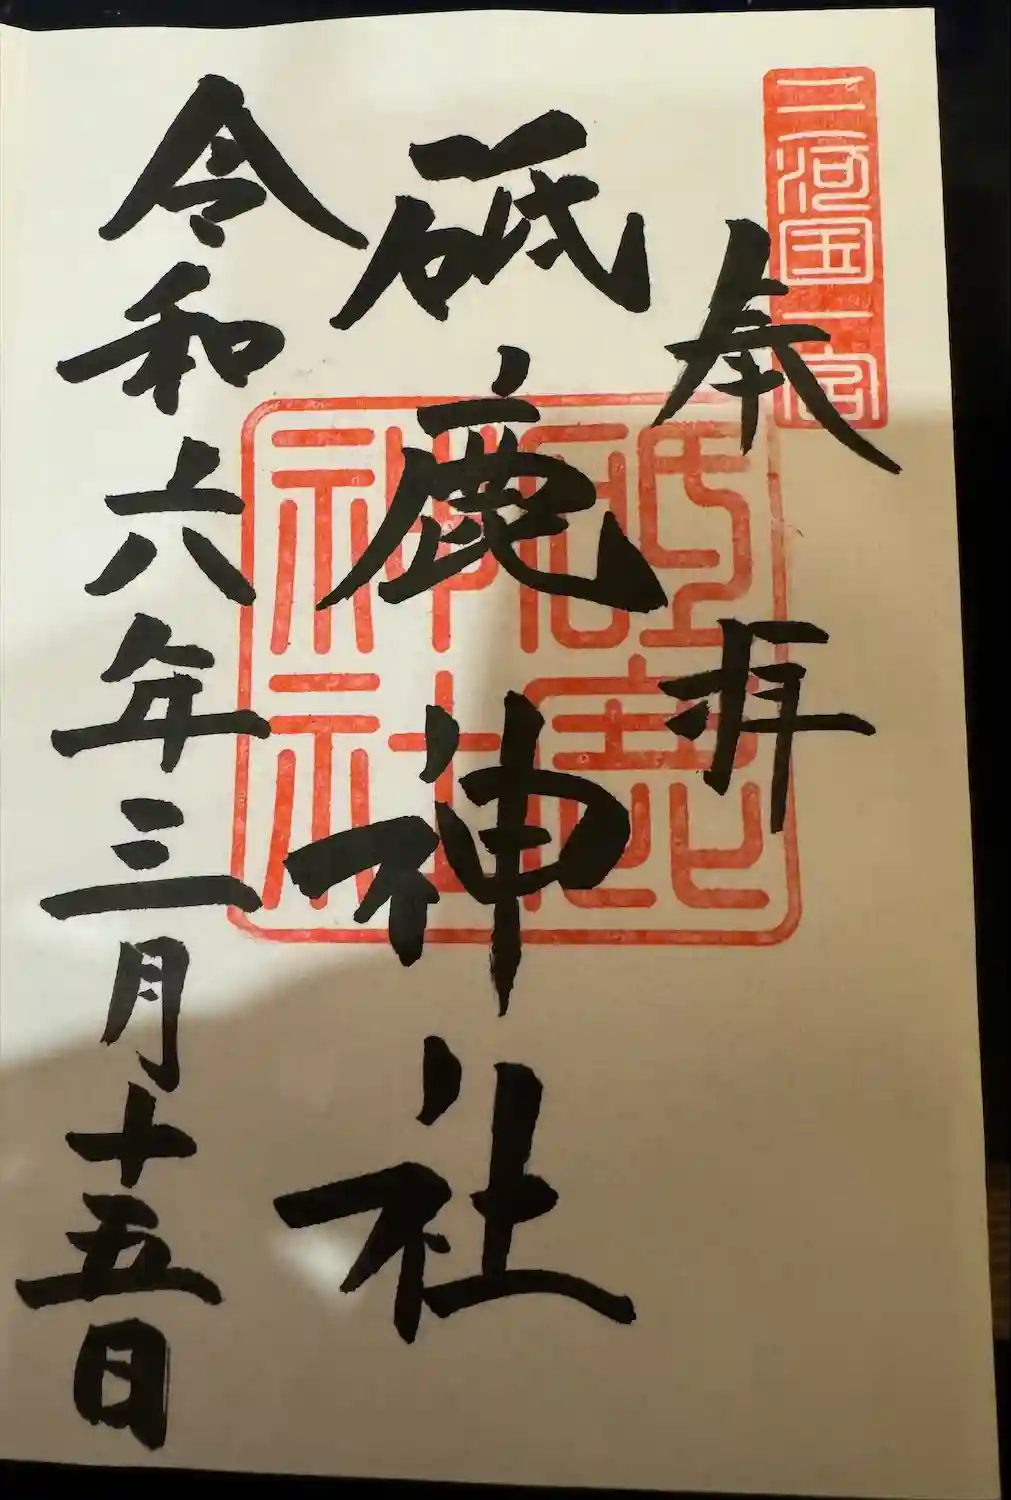 三河国一宮
奉拝
砥鹿神社
砥鹿
神社
令和六年三月十五日